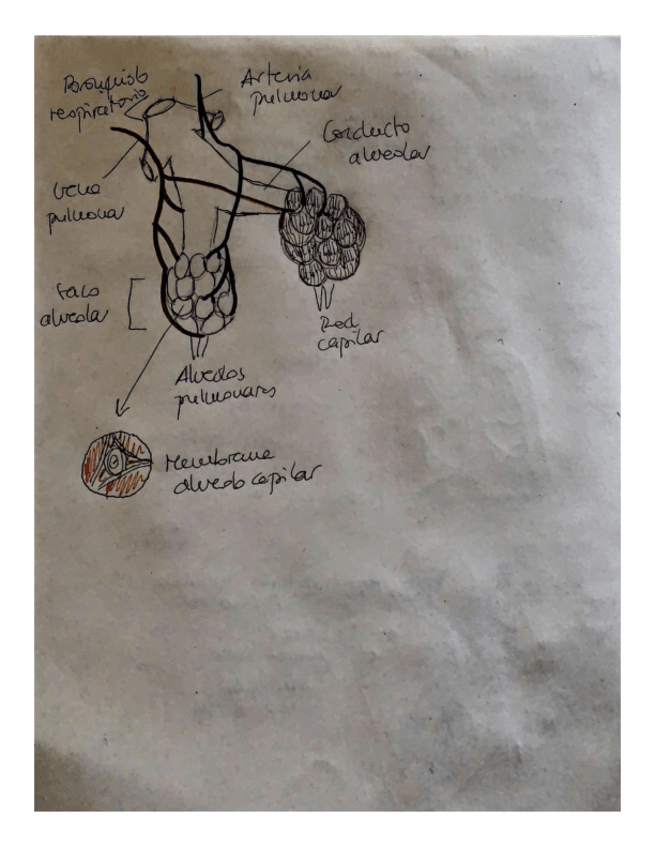 Bronquiolo
respiratorio
Arteria
pulmonar
Conducto
alveolar
Vena
pulmonar
Saco
alveolar
Red
capilar
Alveolos
pulmonares
Membrana
alveolo capilar